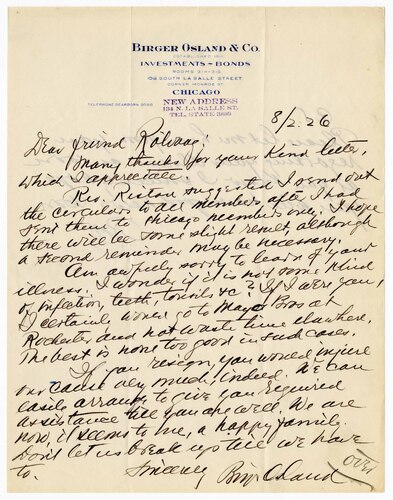 BIRGER OSLAND & CO.
ESTABLISHED 1911
INVESTMENTS - BONDS
ROOMS 311-313
109 SOUTH LA SALLE STREET
CORNER MONROE ST
CHICAGO
TELEPHONE DEARBORN
NEW ADDRESS
134 N. LA SALLE ST.
TEL. STATE 3689
8/2.26
Dear friend Rolvaag!
Many thanks for your kind letter,
which I appreciate.
Rev. Ristad suggested I send out
the circulars to all members after I had
sent them to Chicago members only. I hope
there will be some slight result, although
a second reminder may be necessary.
Am awfully sorry to learn of your
illness. I wonder if it is not some kind
of infection, teeth, tonsils &c? If I were you,
I certainly would go to Mayo Bros at
Rochester and not waste time elsewhere.
The best is none too good in such cases.
If you resign, you would injure
our cause very much, indeed. We can
easily arrange to give you required
assistance till you are well. We are
now, it seems to me, a happy family.
Don't let us break up till we have
to.
Sincerely
Birger Osland